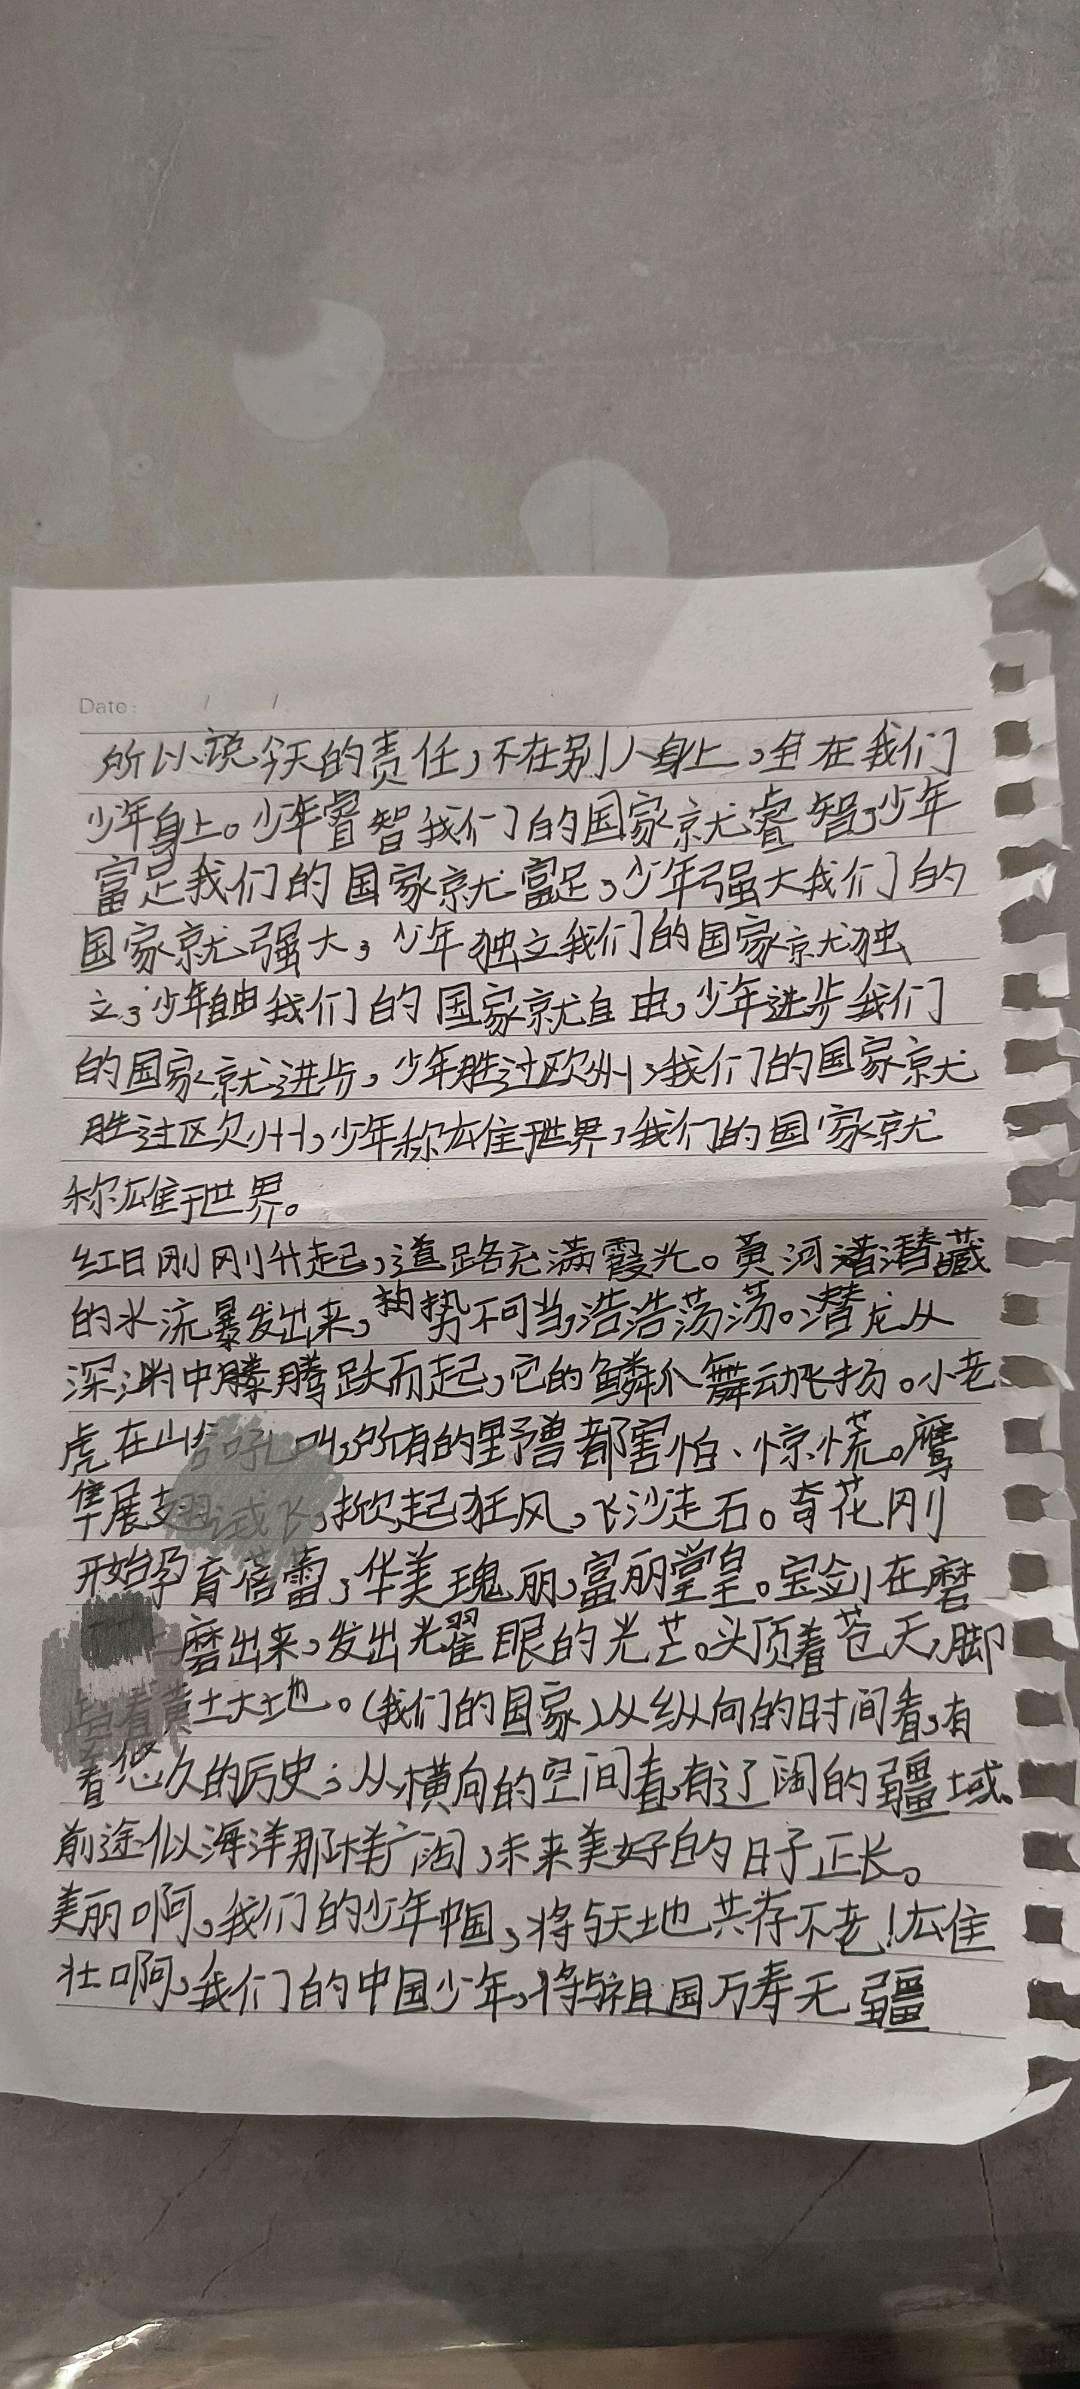 Date: / /
所以说今天的责任，不在别人身上，全在我们
少年身上。少年睿智我们的国家就睿智，少年
富足我们的国家就富足，少年强大我们的
国家就强大，少年独立我们的国家就独
立，少年自由我们的国家就自由，少年进步我们
的国家就进步，少年胜过欧州，我们的国家就
胜过欧州，少年称雄于世界，我们的国家就
称雄于世界。
红日刚刚升起，道路充满霞光。黄河潜藏
的水流暴发出来，势不可当，浩浩荡荡。潜龙从
深渊中腾跃而起，它的鳞爪舞动飞扬。小老
虎在山谷吼叫，所有的野兽都害怕、惊慌。鹰
隼展翅试飞，掀起狂风，飞沙走石。奇花刚
开始孕育蓓蕾，华美瑰丽，富丽堂皇。宝剑在磨
磨出来，发出光耀眼的光芒。头顶着苍天，脚
着黄土大地。（我们的国家）从纵向的时间看，有
着悠久的历史；从横向的空间看，有辽阔的疆域、
前途似海洋那样广阔，未来美好的日子正长。
美丽啊，我们的少年中国，将与天地共存不老！雄
壮啊，我们的中国少年，将与祖国万寿无疆